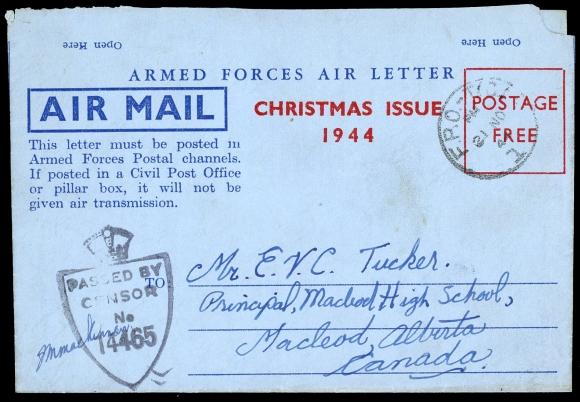 Open Here
Open Here
ARMED FORCES AIR LETTER
AIR MAIL
CHRISTMAS ISSUE
1944
POSTAGE
FREE
This letter must be posted in
Armed Forces Postal channels.
If posted in a Civil Post Office
or pillar box, it will not be
given air transmission.
PASSED BY
CENSOR
No
14465
TO
Mr. E. V. C. Tucker.
Principal, Macleod High School,
Macleod, Alberta
Canada.